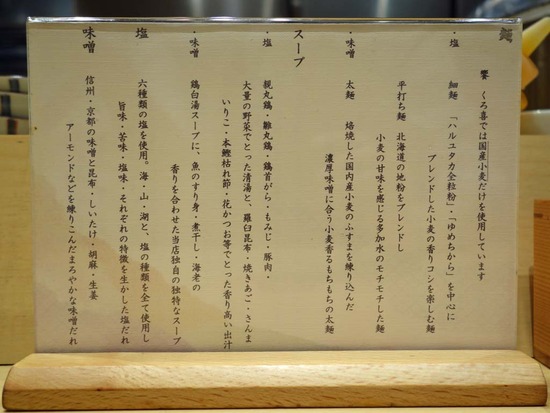 麺
饗 くろ喜では国産小麦だけを使用しています
・塩 細麺 「ハルユタカ全粒粉」・「ゆめちから」を中心に
ブレンドした小麦の香りコシを楽しむ麺
平打ち麺 北海道の地粉をブレンドし
小麦の甘味を感じる多加水のモチモチした麺
・味噌 太麺 焙煎した国内産小麦のふすまを練り込んだ
濃厚味噌に合う小麦香るもちもちの太麺
スープ
・塩 親丸鶏・雛丸鶏・鶏首がら・もみじ・豚肉・
大量の野菜でとった清湯と、羅臼昆布・焼きあご・さんま
いりこ・本鰹枯れ節・花かつお等でとった香り高い出汁
・味噌 鶏白湯スープに、魚のすり身・煮干し・海老の
香りを合わせた当店独自の独特なスープ
塩 六種類の塩を使用。海・山・湖と、塩の種類を全て使用し
旨味・苦味・塩味・それぞれの特徴を生かした塩だれ
味噌 信州・京都の味噌と昆布・しいたけ・胡麻・生姜
アーモンドなどを練りこんだまろやかな味噌だれ